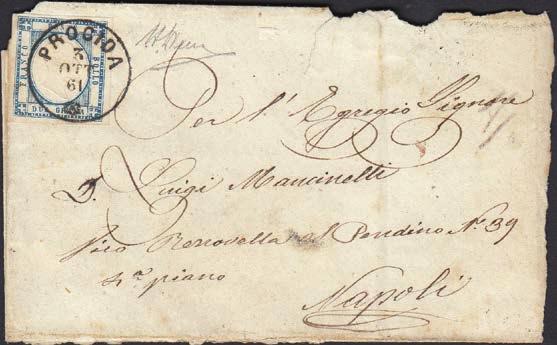 PROCIDA
3
OTT
61
FRANCO
BOLLO
DUE GRANA
Per l'Egregio Signore
D. Luigi Mancinelli
Vico Rensovella al Pendino N.º 39
4.º piano
Napoli